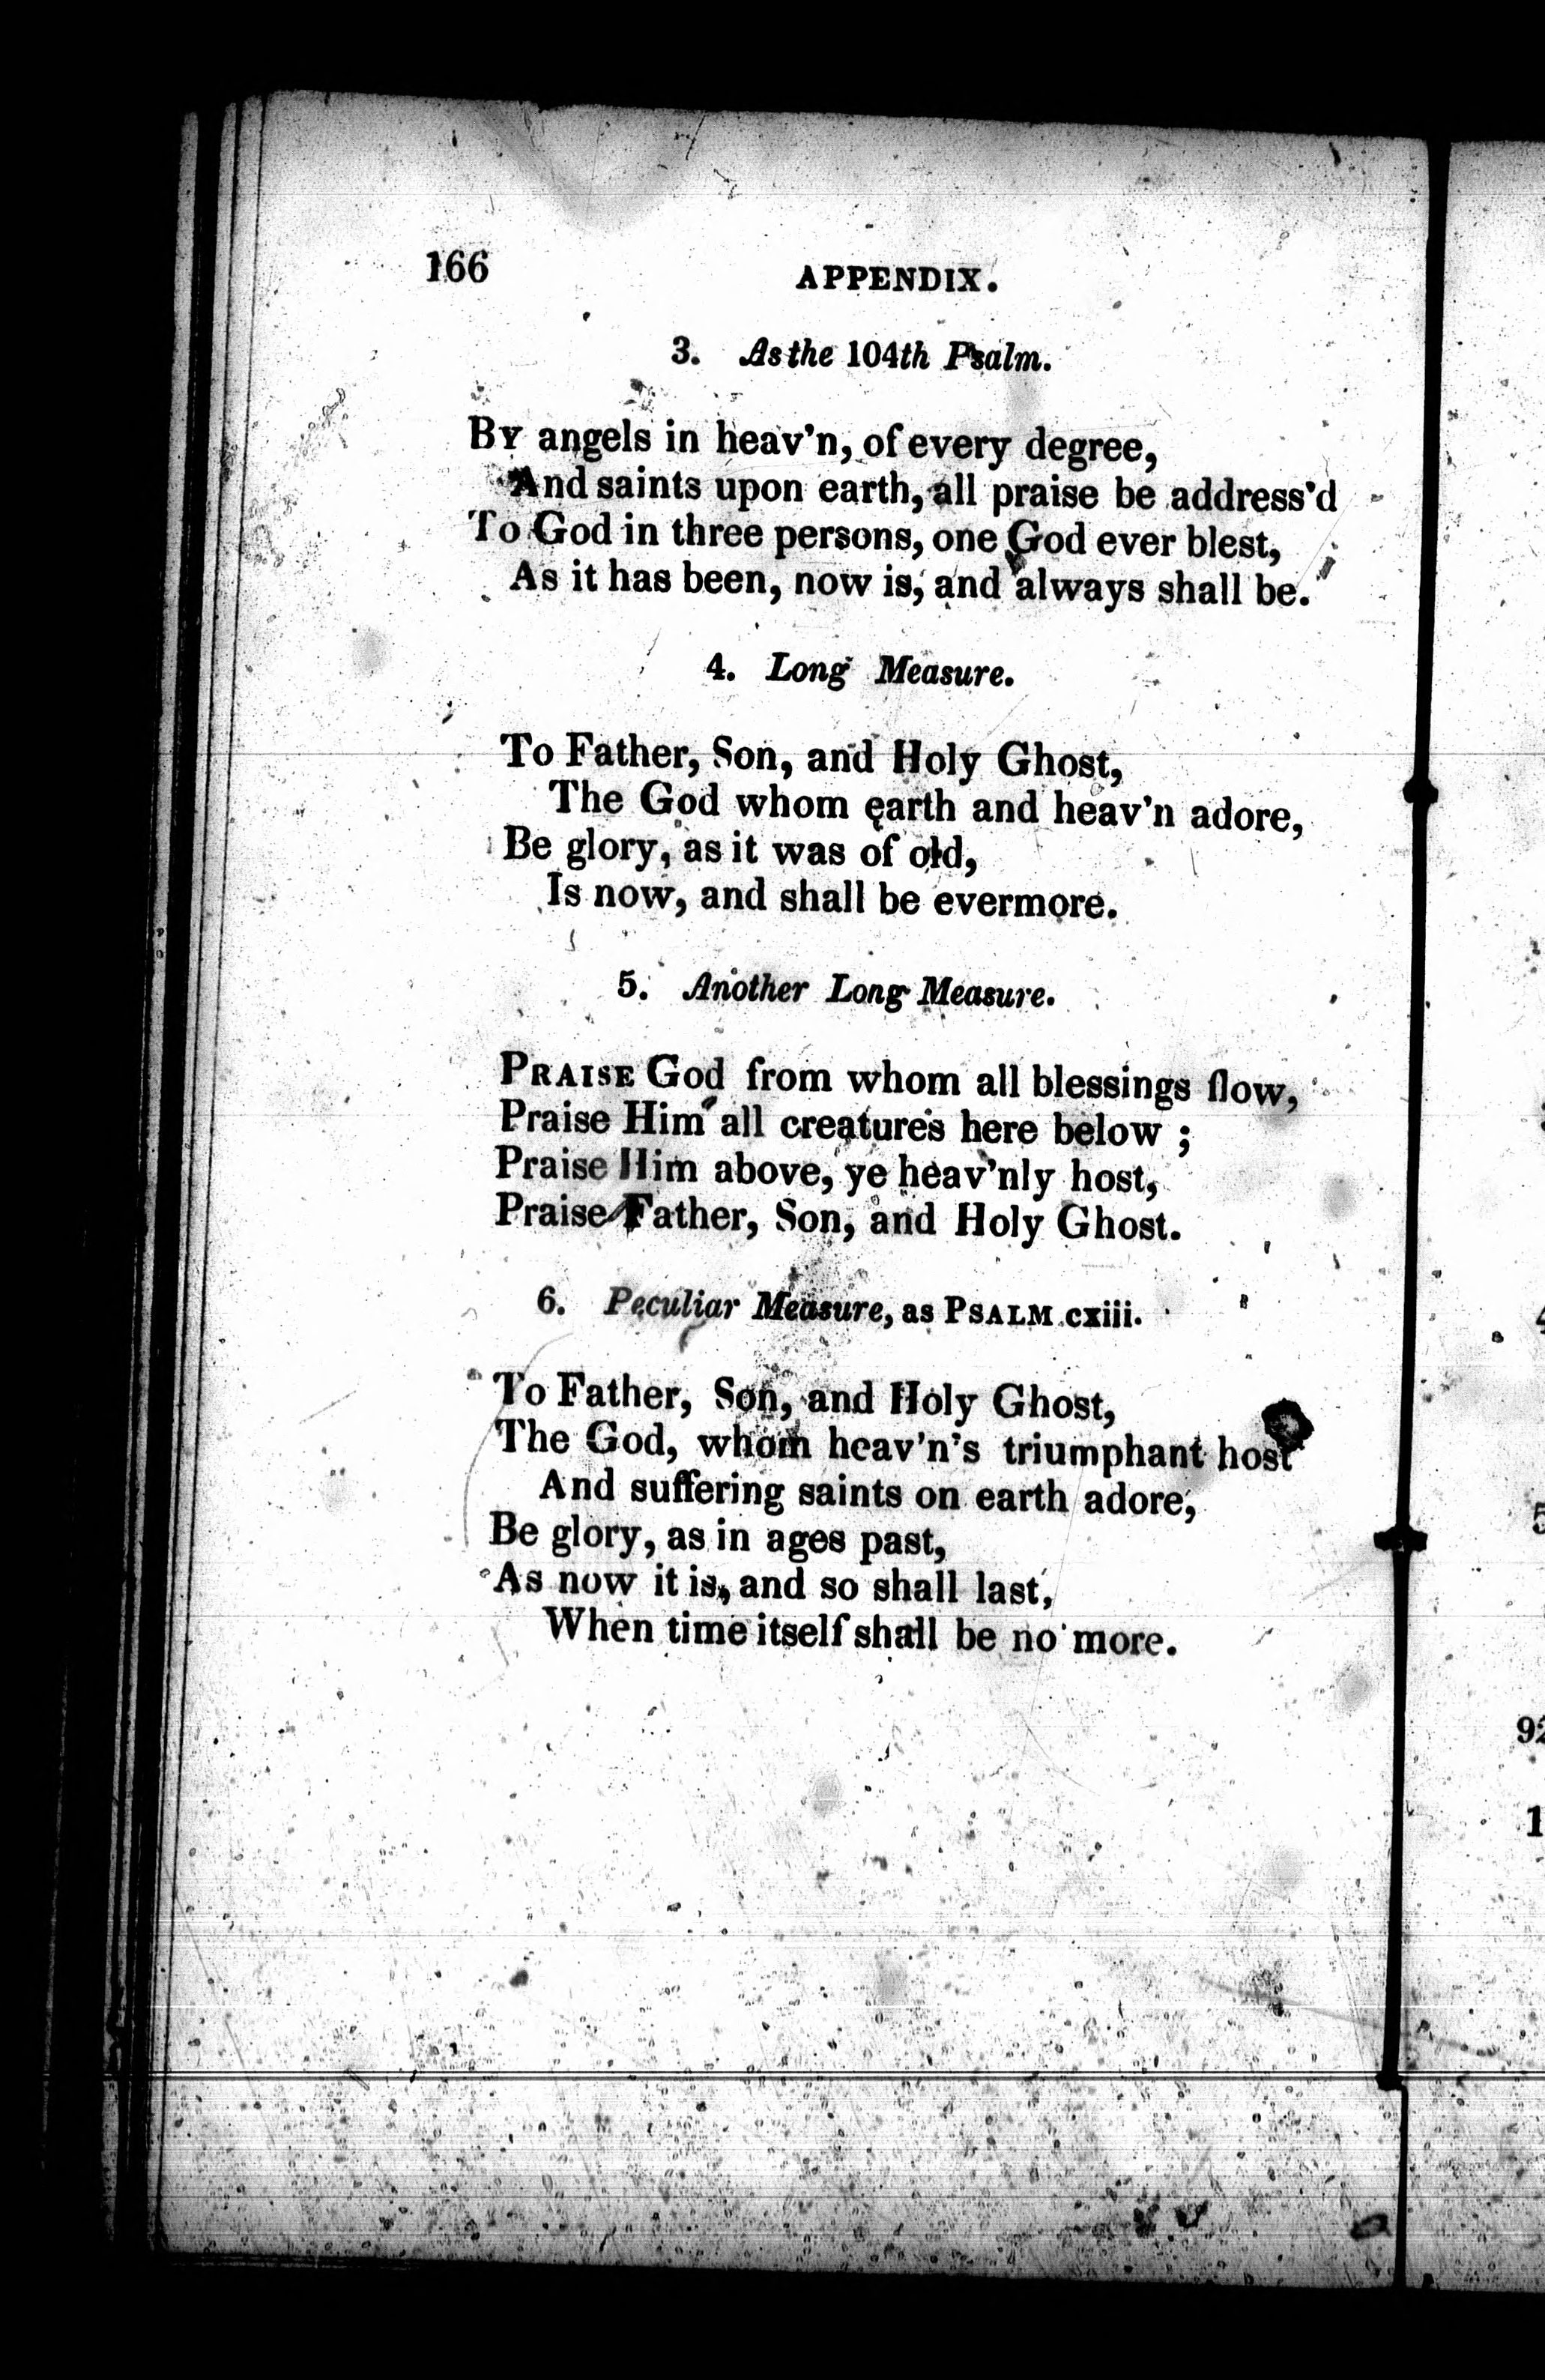 166
APPENDIX.
3. As the 104th Psalm.
BY angels in heav'n, of every degree,
And saints upon earth, all praise be address'd
To God in three persons, one God ever blest,
As it has been, now is, and always shall be.
4. Long Measure.
To Father, Son, and Holy Ghost,
The God whom earth and heav'n adore,
Be glory, as it was of old,
Is now, and shall be evermore.
5. Another Long Measure.
PRAISE God from whom all blessings flow,
Praise Him all creatures here below ;
Praise Him above, ye heav'nly host,
Praise Father, Son, and Holy Ghost.
6. Peculiar Measure, as PSALM cxiii.
To Father, Son, and Holy Ghost,
The God, whom heav'n's triumphant host
And suffering saints on earth adore,
Be glory, as in ages past,
As now it is, and so shall last,
When time itself shall be no more.